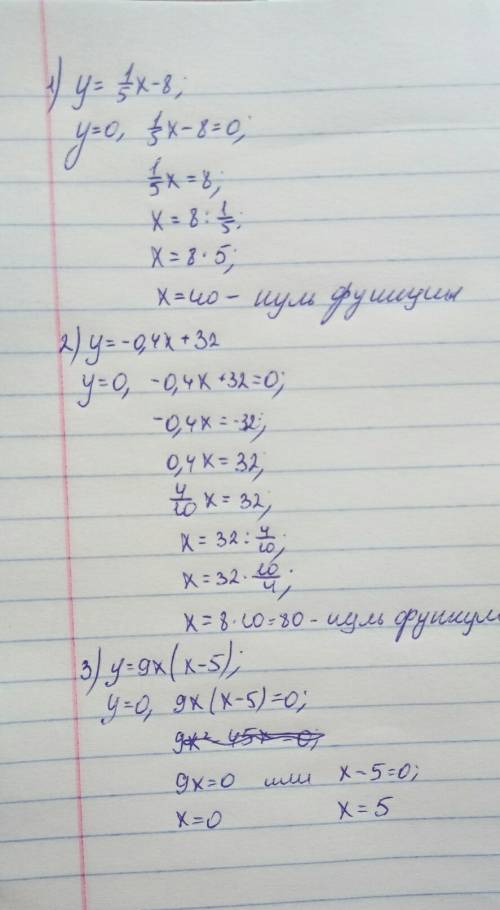 1) y = 1/5 x - 8;
y = 0, 1/5 x - 8 = 0;
1/5 x = 8;
x = 8 : 1/5;
x = 8 · 5;
x = 40 - нуль функции
2) y = -0,4x + 32
y = 0, -0,4x + 32 = 0;
-0,4x = -32;
0,4x = 32;
4/10 x = 32;
x = 32 : 4/10;
x = 32 · 10/4;
x = 8 · 10 = 80 - нуль функции
3) y = 9x(x - 5);
y = 0, 9x(x - 5) = 0;
9x² - 45x = 0;
9x = 0 или x - 5 = 0;
x = 0 x = 5